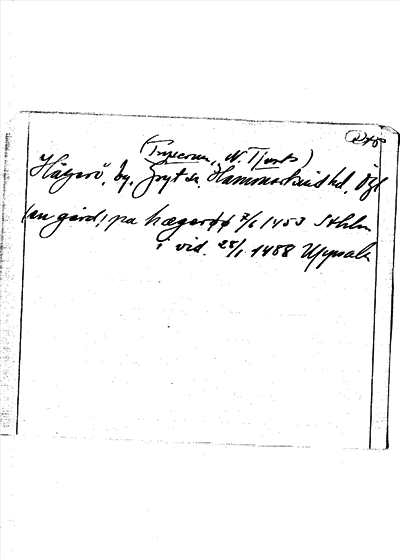 (Tryserum, N. Tjust)
Hägerö, by, Gryt sn, Hammarkind hd, Ögl
(en gård) pa hægerøø 7/6 1453 Sthlm
i vid. 25/1 1488 Uppsala